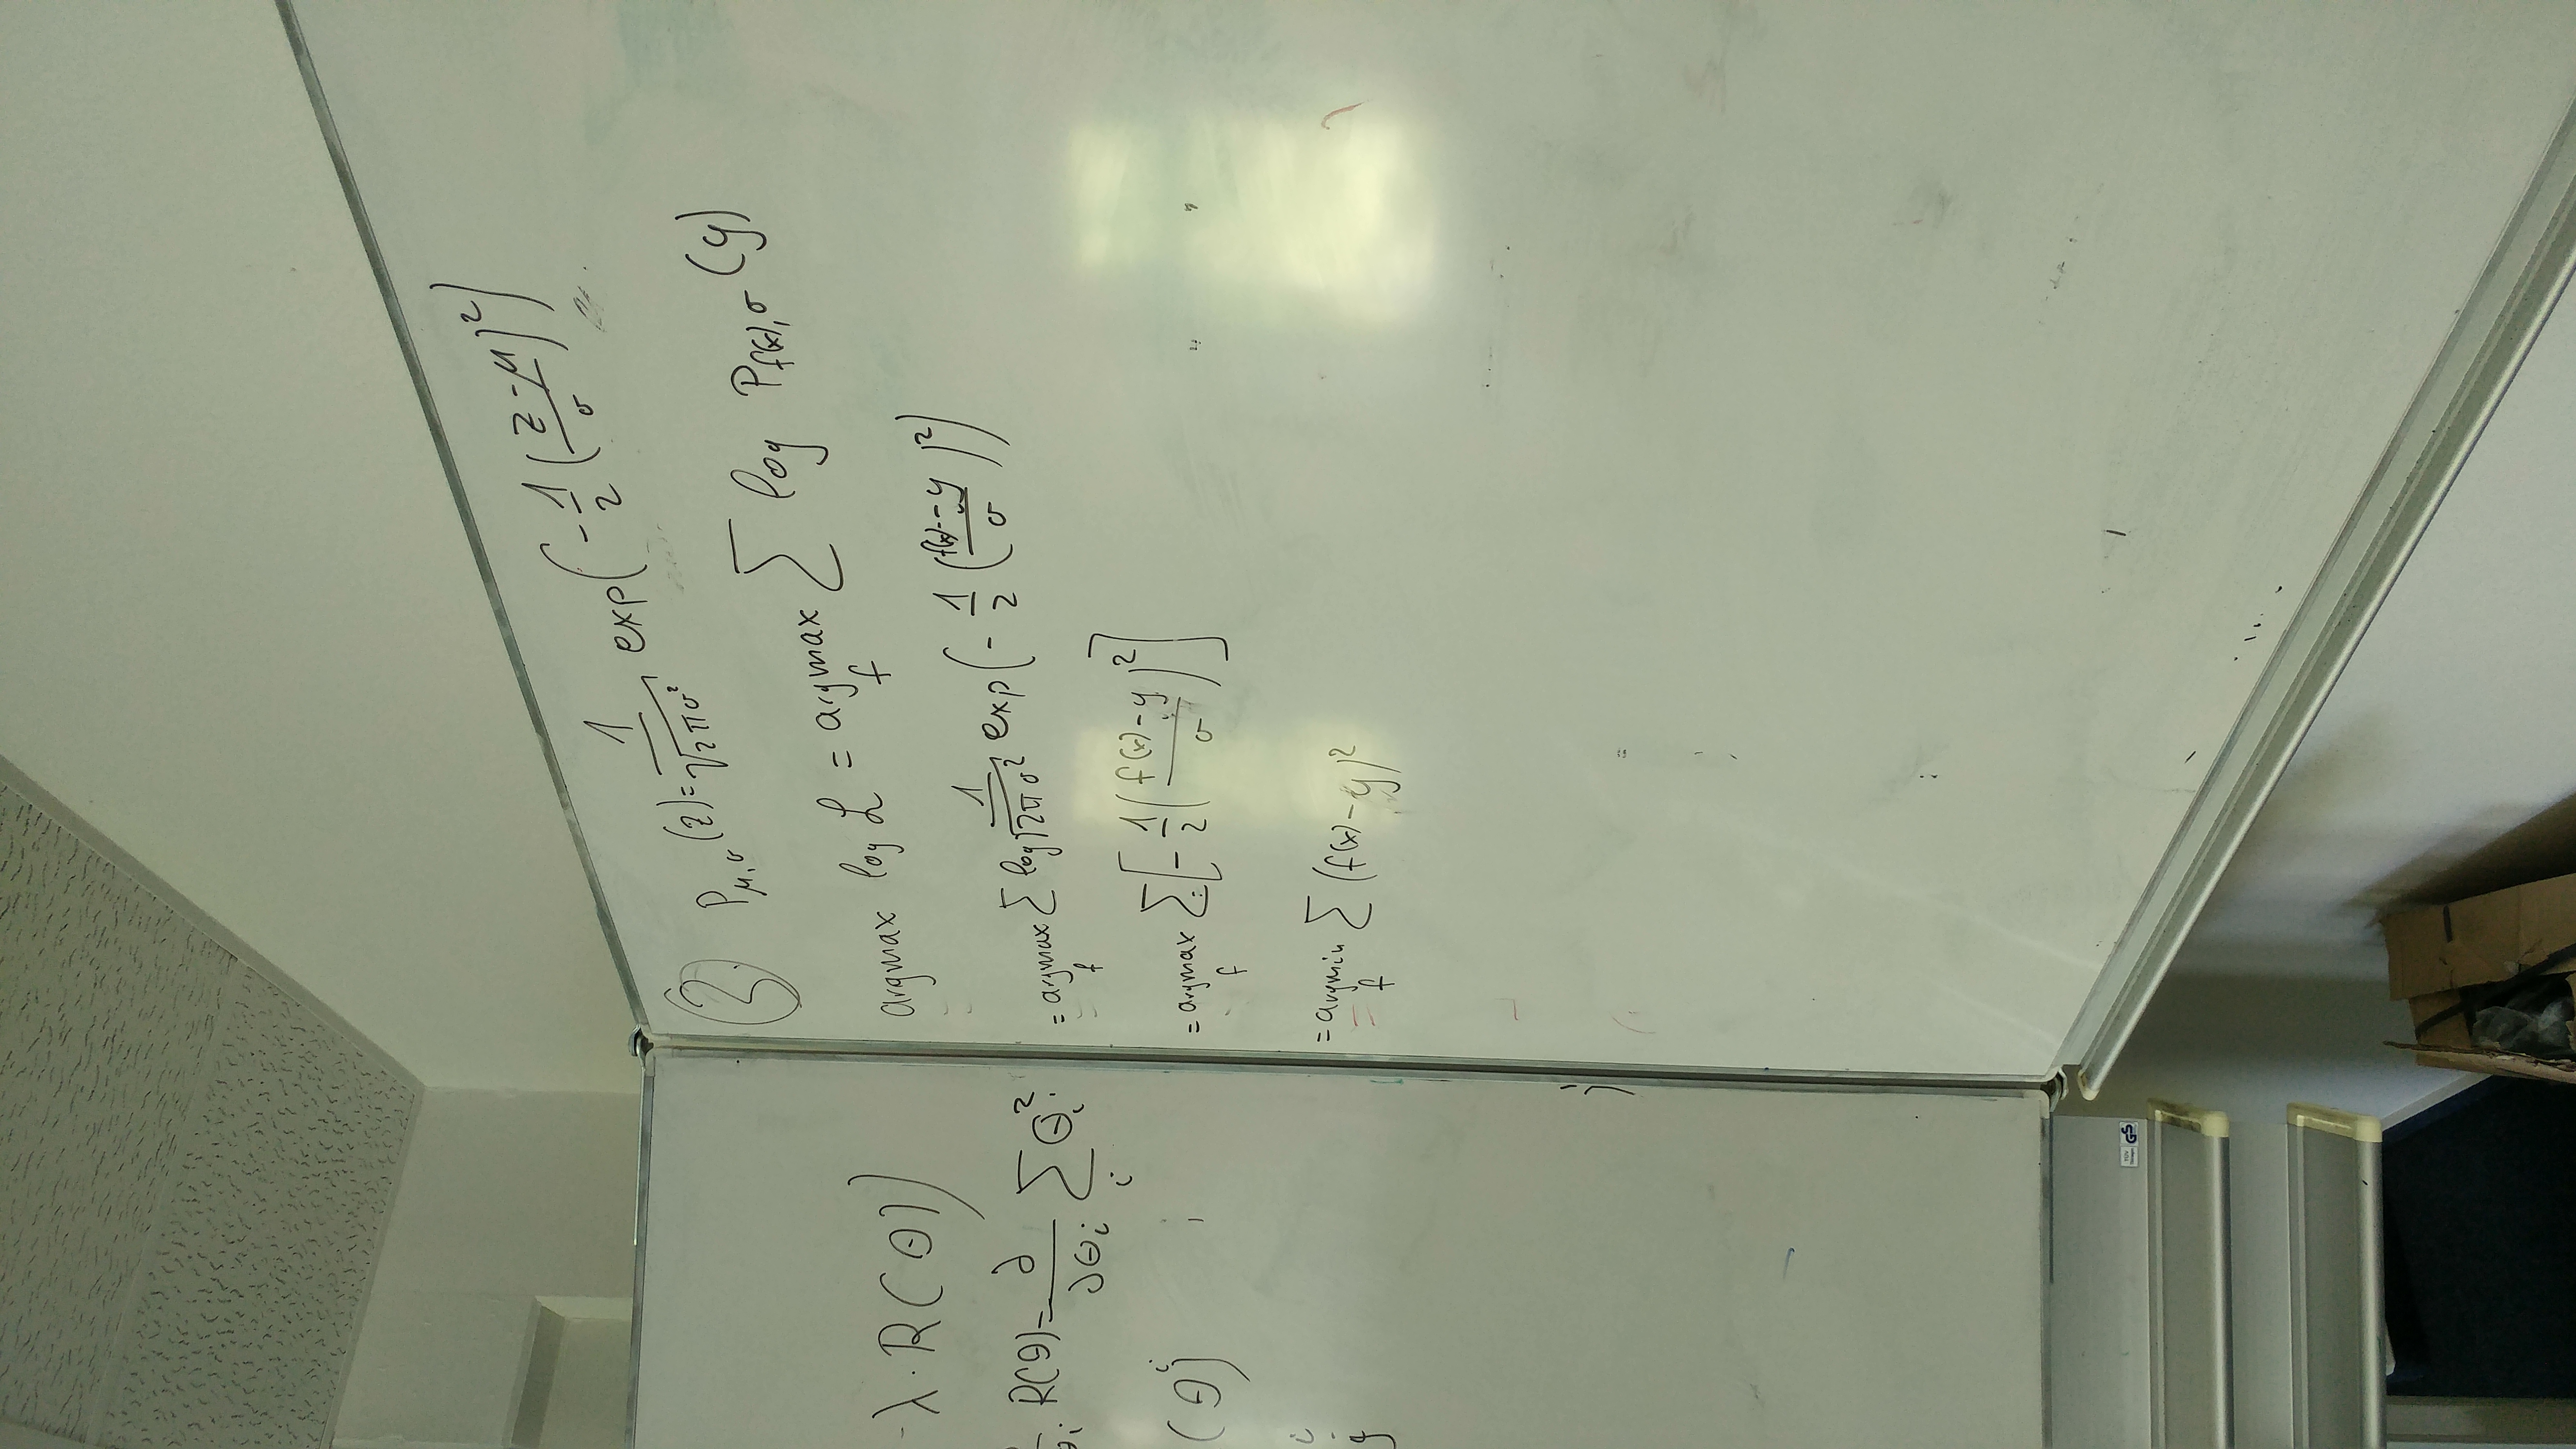 -λ · R(θ))
R(θ) = ∂/∂θᵢ ∑ᵢ θᵢ²
(θ)ⁱ
③ P_μ,σ (z) = 1/√(2πσ²) exp(-1/2 ((z-μ)/σ)²)
argmax log ℒ = argmax_f ∑ log P_f(x),σ (y)
= argmax_f ∑ log 1/√(2πσ²) exp(-1/2 ((f(x)-y)/σ)²)
= argmax_f ∑ [-1/2 ((f(x)-y)/σ)²]
= argmin_f ∑ (f(x)-y)²
TÜV
GS